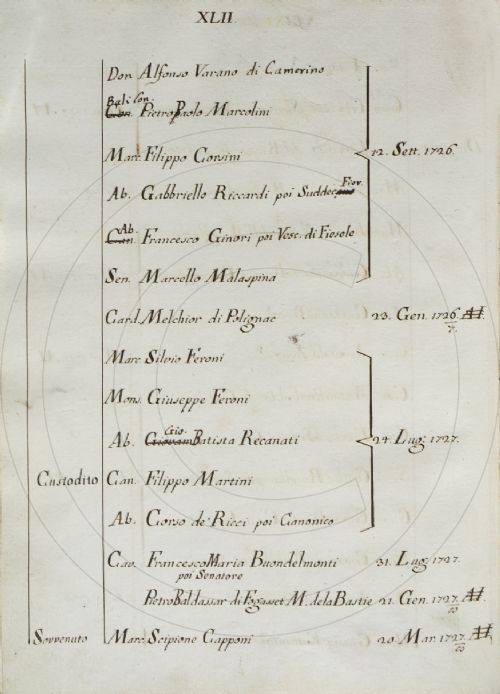 XLII.
Don Alfonso Varano di Camerino
Bali Con.
Con. Pietro Paolo Marcolini
Mar. Filippo Corsini 12. Sett. 1726.
Ab. Gabbriello Riccardi poi Suddec. Fior.
Ab.
Can. Francesco Ginori poi Vesc. di Fiesole
Sen. Marcello Malaspina
Card. Melchior di Polignac 23. Gen. 1726/7.
Mar. Silvio Feroni
Mons. Giuseppe Feroni
Gio.
Ab. Giovan Batista Recanati 24. Lug. 1727.
Custodito Can. Filippo Martini
Ab. Corso de' Ricci poi Canonico
Cav. Francesco Maria Buondelmonti 31. Lug. 1727.
poi Senatore
Pietro Baldassar di Fogasset M. de la Bastie 21. Gen. 1727.
Sovvenuto Mar. Scipione Capponi 20. Mar. 1727.